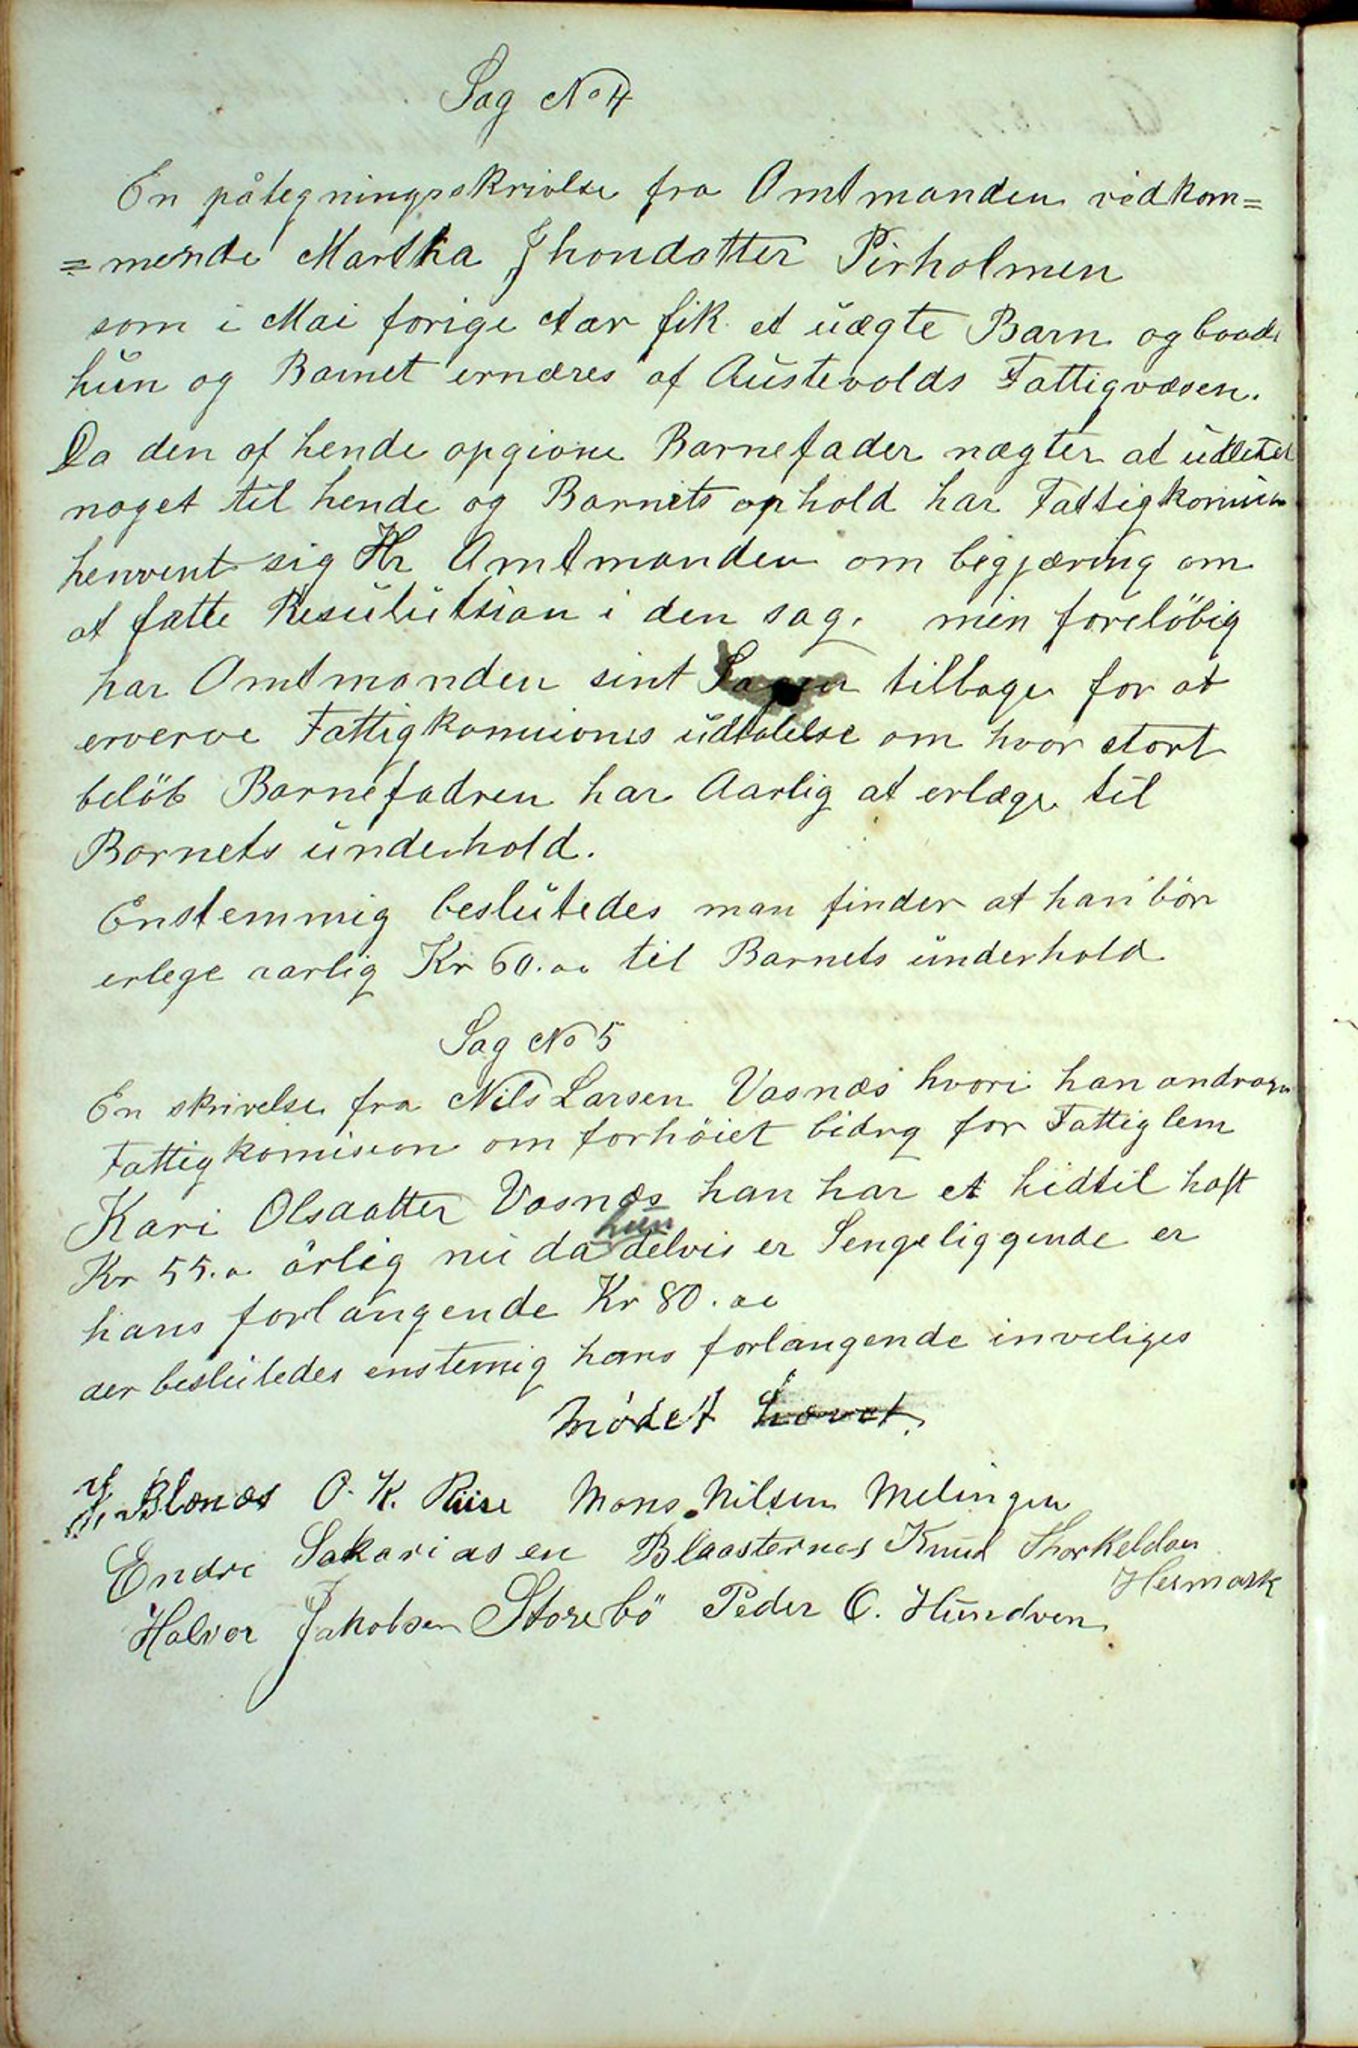 Sag No 4
En påtegningsskrivlse fra Amtmanden vedkom=
=mende Martha Jhondatter Pirholmen
som i Mai forige Aar fik et uægte Barn og baade
hun og Barnet ernæres af Austevolds Fattigvæsen.
Da den af hende opgivne Barnefader nægter at
noget til hende og Barnets ophold har Fattigkomision
henvent sig Hr Amtmanden om begjæring om
at fatte Resulutsian i den sag. men foreløbig
har Amtmanden sint Sagen tilbage for at
erverve Fattigkomisiones udtalelse om hvor stort
beløb Barnefadren har Aarlig at erlæge til
Barnets underhold.
Enstemmig beslutedes man finder at han bör
erlege aarlig Kr 60.00 til Barnets underhold
Sag No 5
En skrivelse fra Nils Larsen Vasnæs hvori han andrager
Fattigkomision om forhöiet bidrg for Fattiglem
Kari Olsdatter Vasnæs han har et hidtil haft
Kr 55.0 årlig nu da hun delvis er Sengeliggende er
hans forlangende Kr 80.00
der beslutedes enstemig hans forlangende inveliges
Mödet hævet.
Blænæs O. K. Riise Mons Nilsen Melingen
Endre Sakariasen Blaasternes Knud Thorkeldsen
Heimark
Halvor Jakobsen Storebö Peder C. Hundven